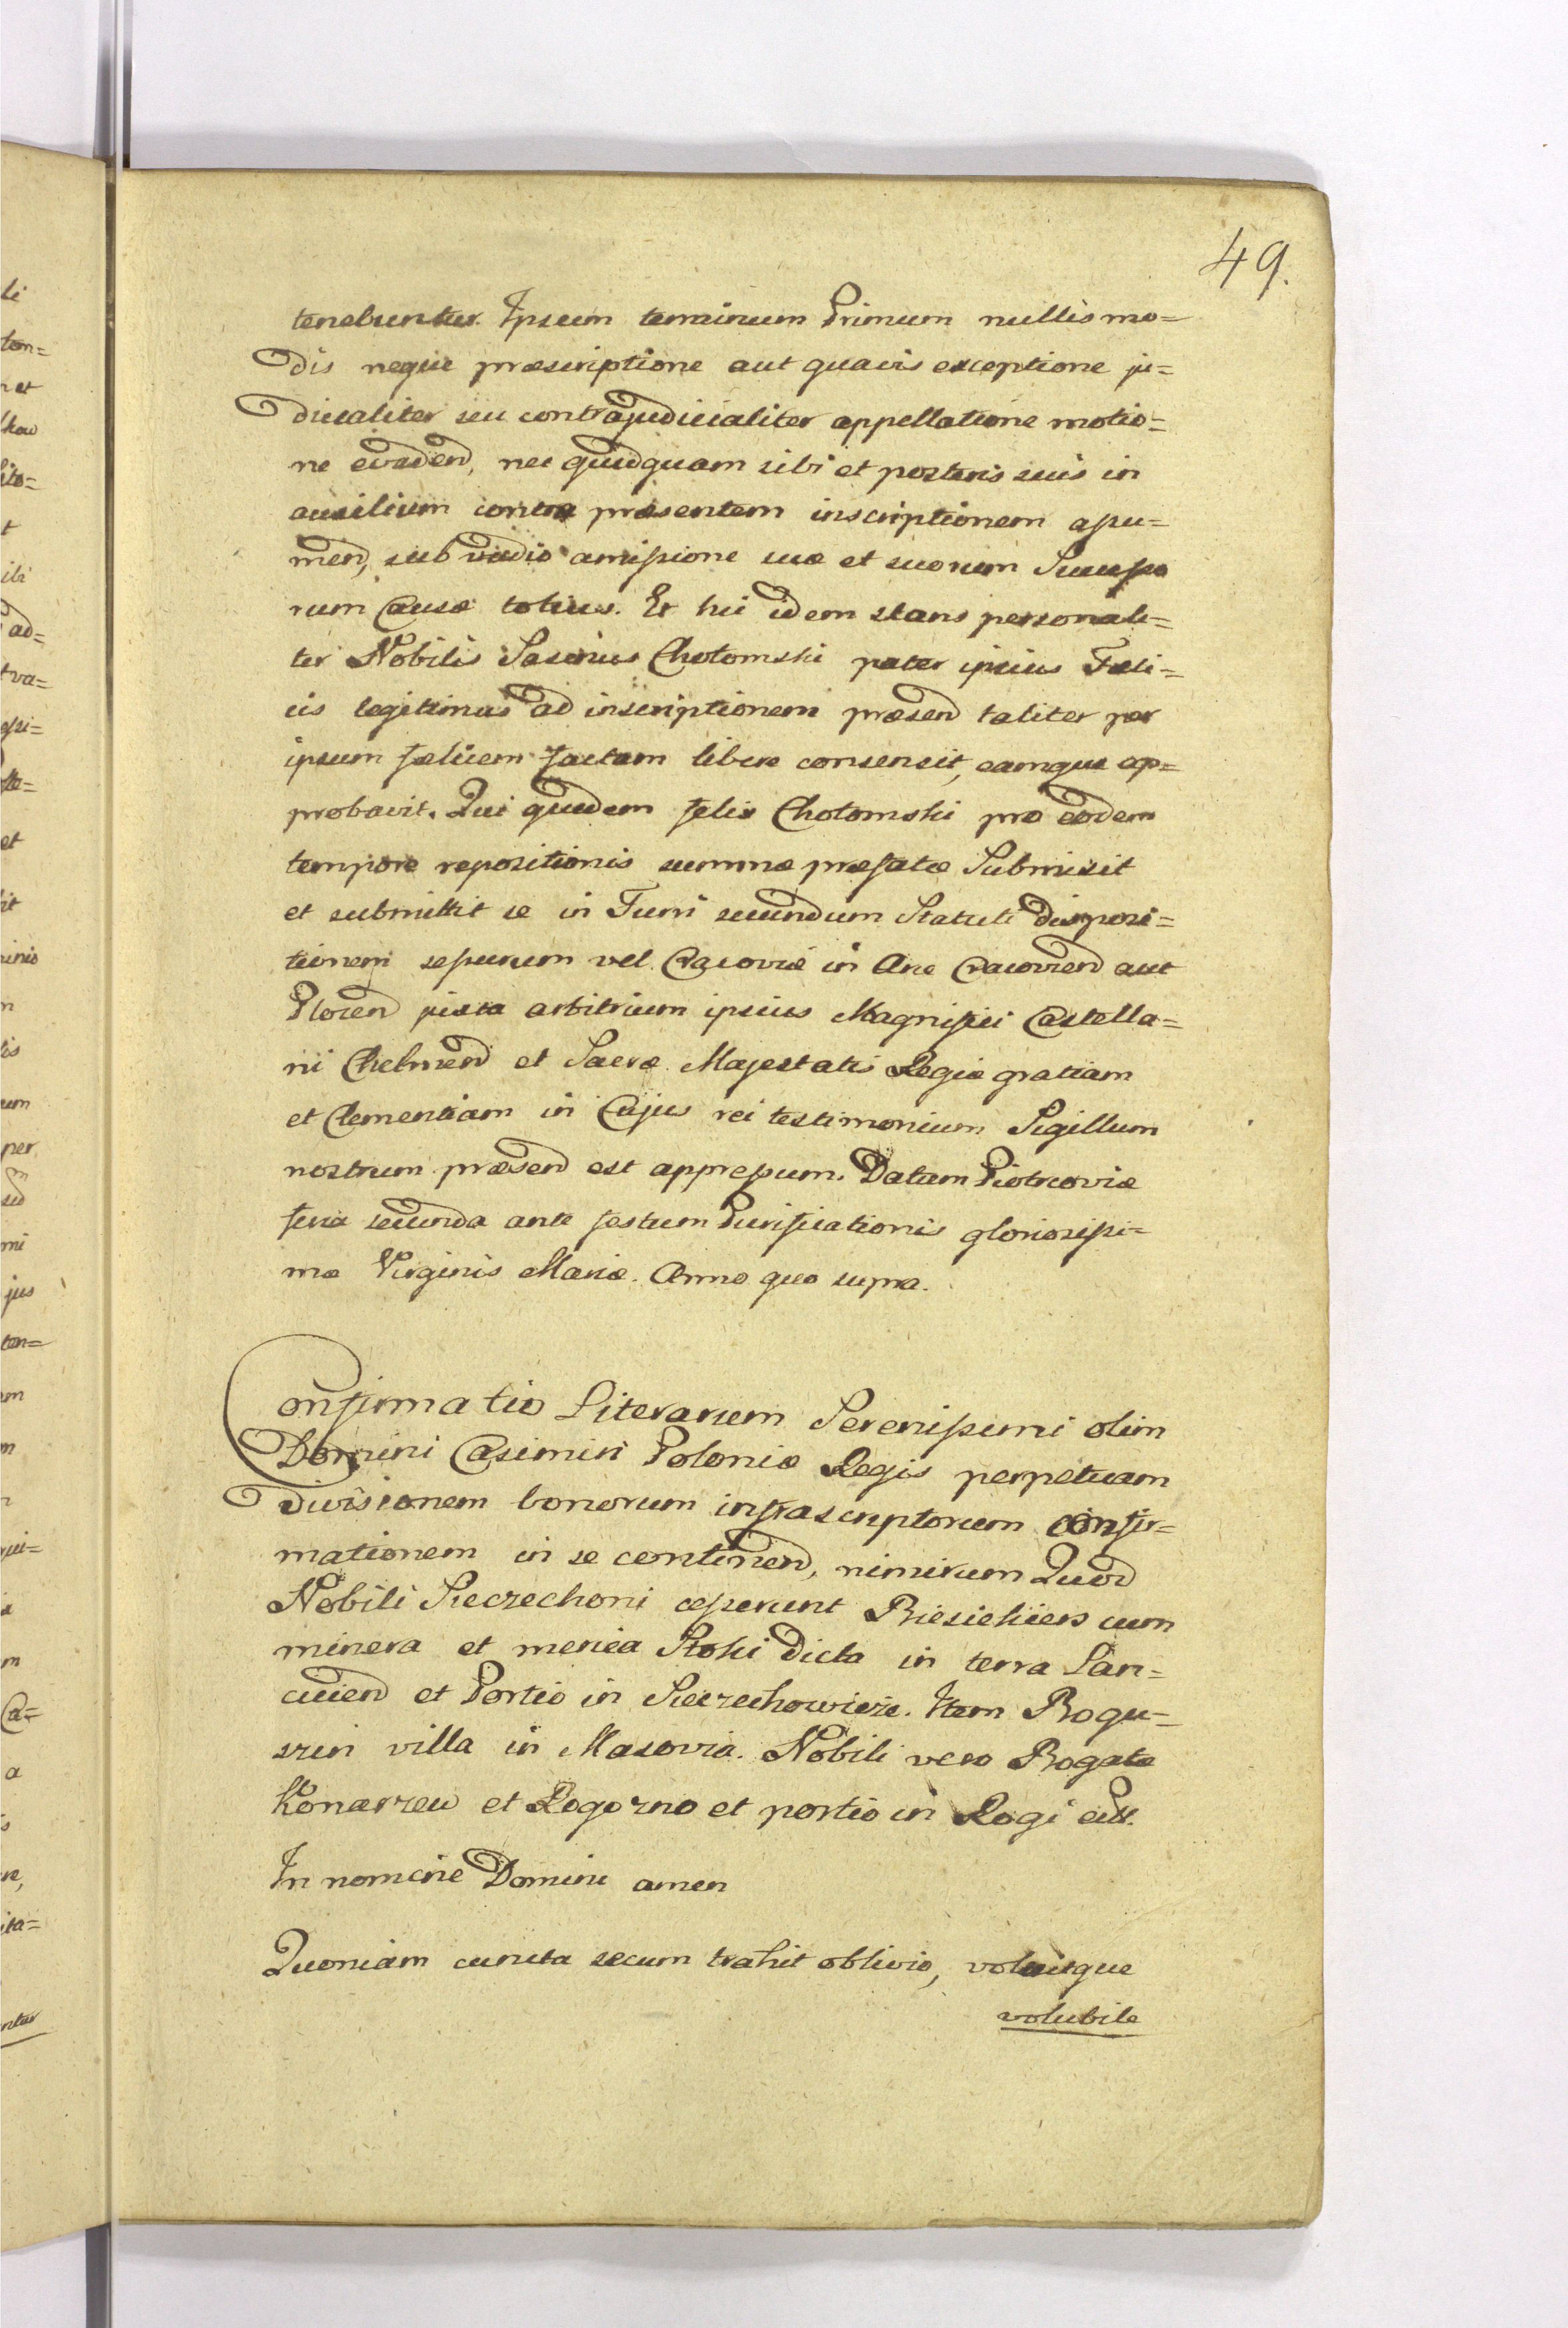 49.
tenebuntur. Ipsum terminum Primum nullis mo=
dis neque præscriptione aut quavis exceptione ju=
dicialiter seu contrajudicialiter appellatione motio=
ne evadend, nec quidquam sibi et posteris suis in
auxilium contra præsentem inscriptionem assu=
mend, sub vadio amissione suæ et suorum Successo
rum Causæ totius. Et hic idem stans personali=
ter Nobilis Sasinus Chotomski pater ipsius Fæli=
cis legitimus ad inscriptionem præsend taliter per
ipsum fælicem factam libere consensit, eamque ap=
probavit. Qui quidem felix Chotomski pro eodem
tempore repositionis summæ præfatæ Submisit
et submittit se in Turri secundum Statuti disposi=
tionem sessurum vel Cracoviæ in Arce Cracoviend aut
Plocend juxta arbitrium ipsius Magnifici Castella=
ni Chelmend et Sacræ Majestatis Regiæ gratiam
et Clementiam in Cujus rei testimonium Sigillum
nostrum præsend est appressum. Datum Piotrcoviæ
feria secunda ante festum Purificationis gloriosissi=
mæ Virginis Mariæ. Anno quo supra.
Confirmatio Literarum Serenissimi olim
Domini Casimiri Poloniæ Regis perpetuam
divisionem bonorum infrascriptorum confir=
mationem in se continend, nimirum Quod
Nobili Sieczechoni cesserunt Biesiekiers cum
minera et merica Stoki dicta in terra Lan=
ciciend et Portio in Sieczechowicze. Item Bogu=
szin villa in Masovia. Nobili vero Bogatæ
Konarzew et Rogozno et portio in Rogi etc.
In nomine Domini amen
Quoniam cuncta secum trahit oblivio, volvitque
volubile